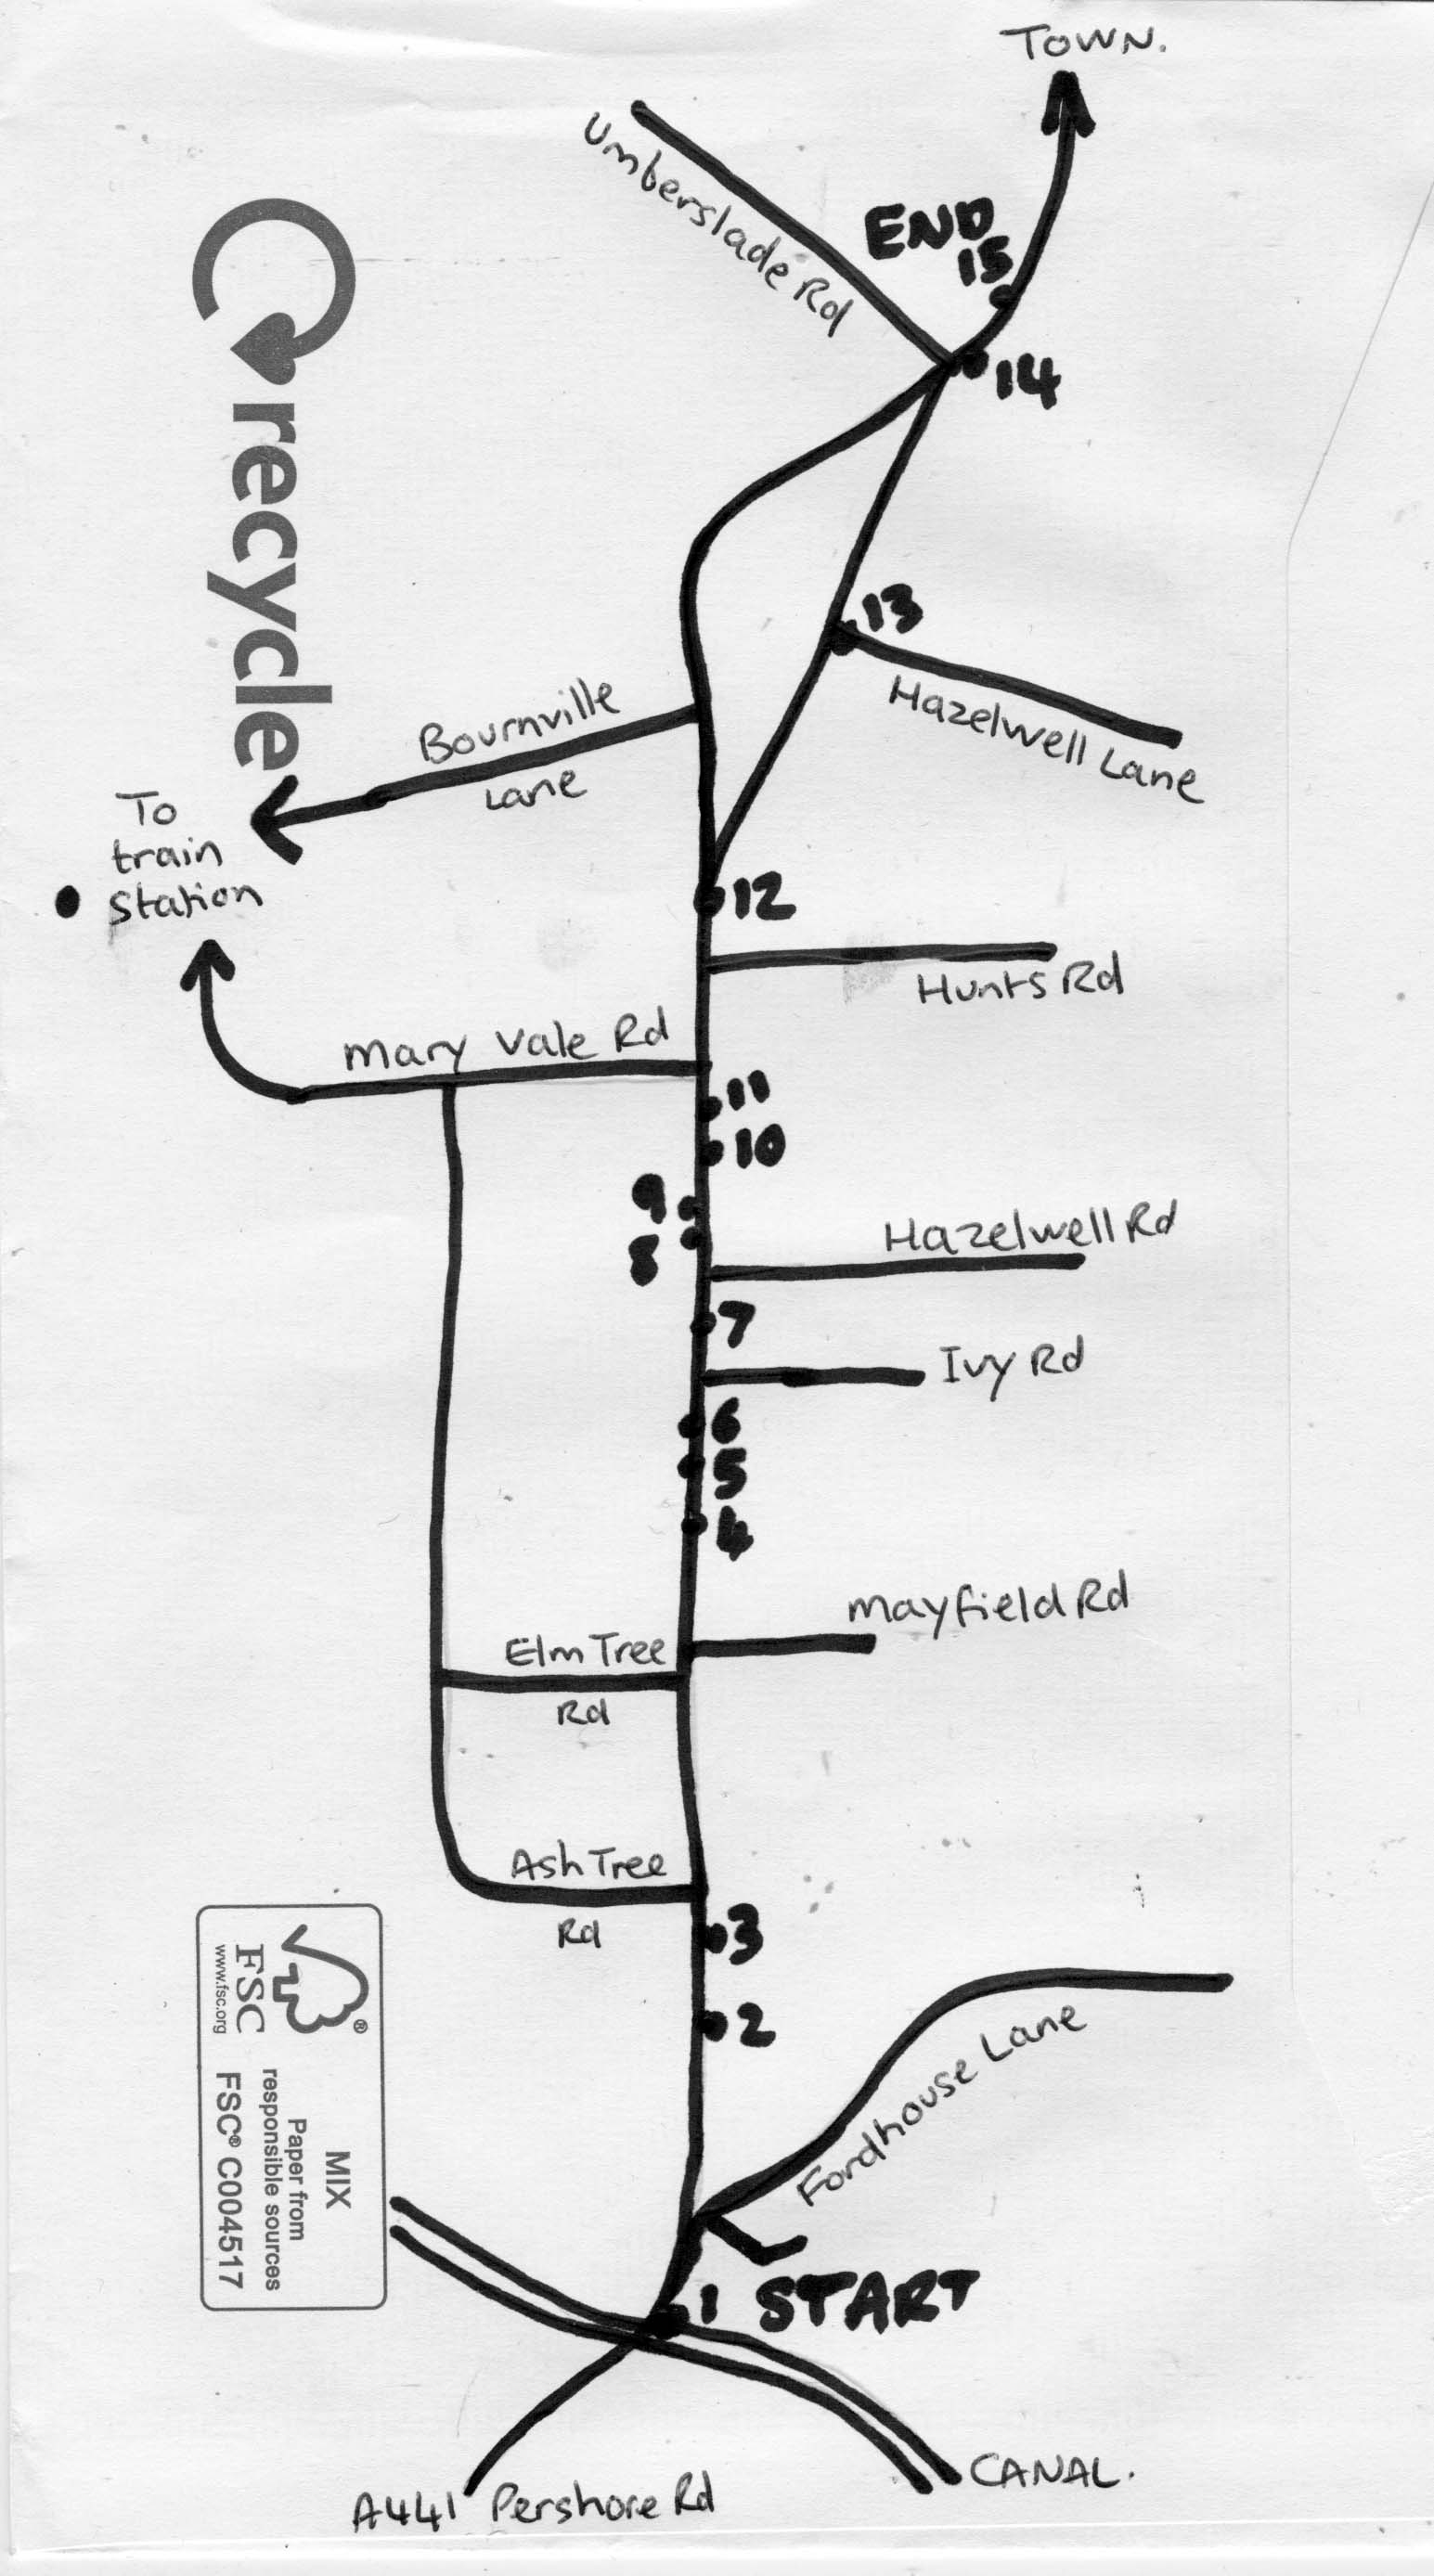 TOWN.
Umberslade Rd
END
15
14
recycle
13
Hazelwell Lane
Bournville
Lane
To
train
station
12
Hunts Rd
Mary Vale Rd
11
10
9
8
Hazelwell Rd
7
Ivy Rd
6
5
4
Mayfield Rd
Elm Tree
Rd
Ash Tree
Rd
3
2
Fordhouse Lane
FSC
www.fsc.org
®
MIX
Paper from
responsible sources
FSC® C004517
1 START
CANAL.
A441 Pershore Rd